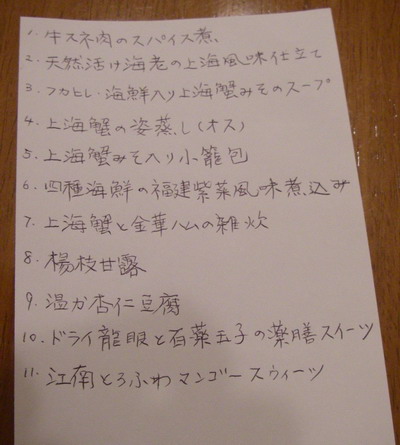 1. 牛スネ肉のスパイス煮
2. 天然活け海老の上海風味仕立て
3. フカヒレ・海鮮入り上海蟹みそのスープ
4. 上海蟹の姿蒸し(オス)
5. 上海蟹みそ入り小籠包
6. 四種海鮮の福建紫菜風味煮込み
7. 上海蟹と金華ハムの雑炊
8. 楊枝甘露
9. 温か杏仁豆腐
10. ドライ龍眼と百薬玉子の薬膳スイーツ
11. 江南とろふわマンゴースウィーツ